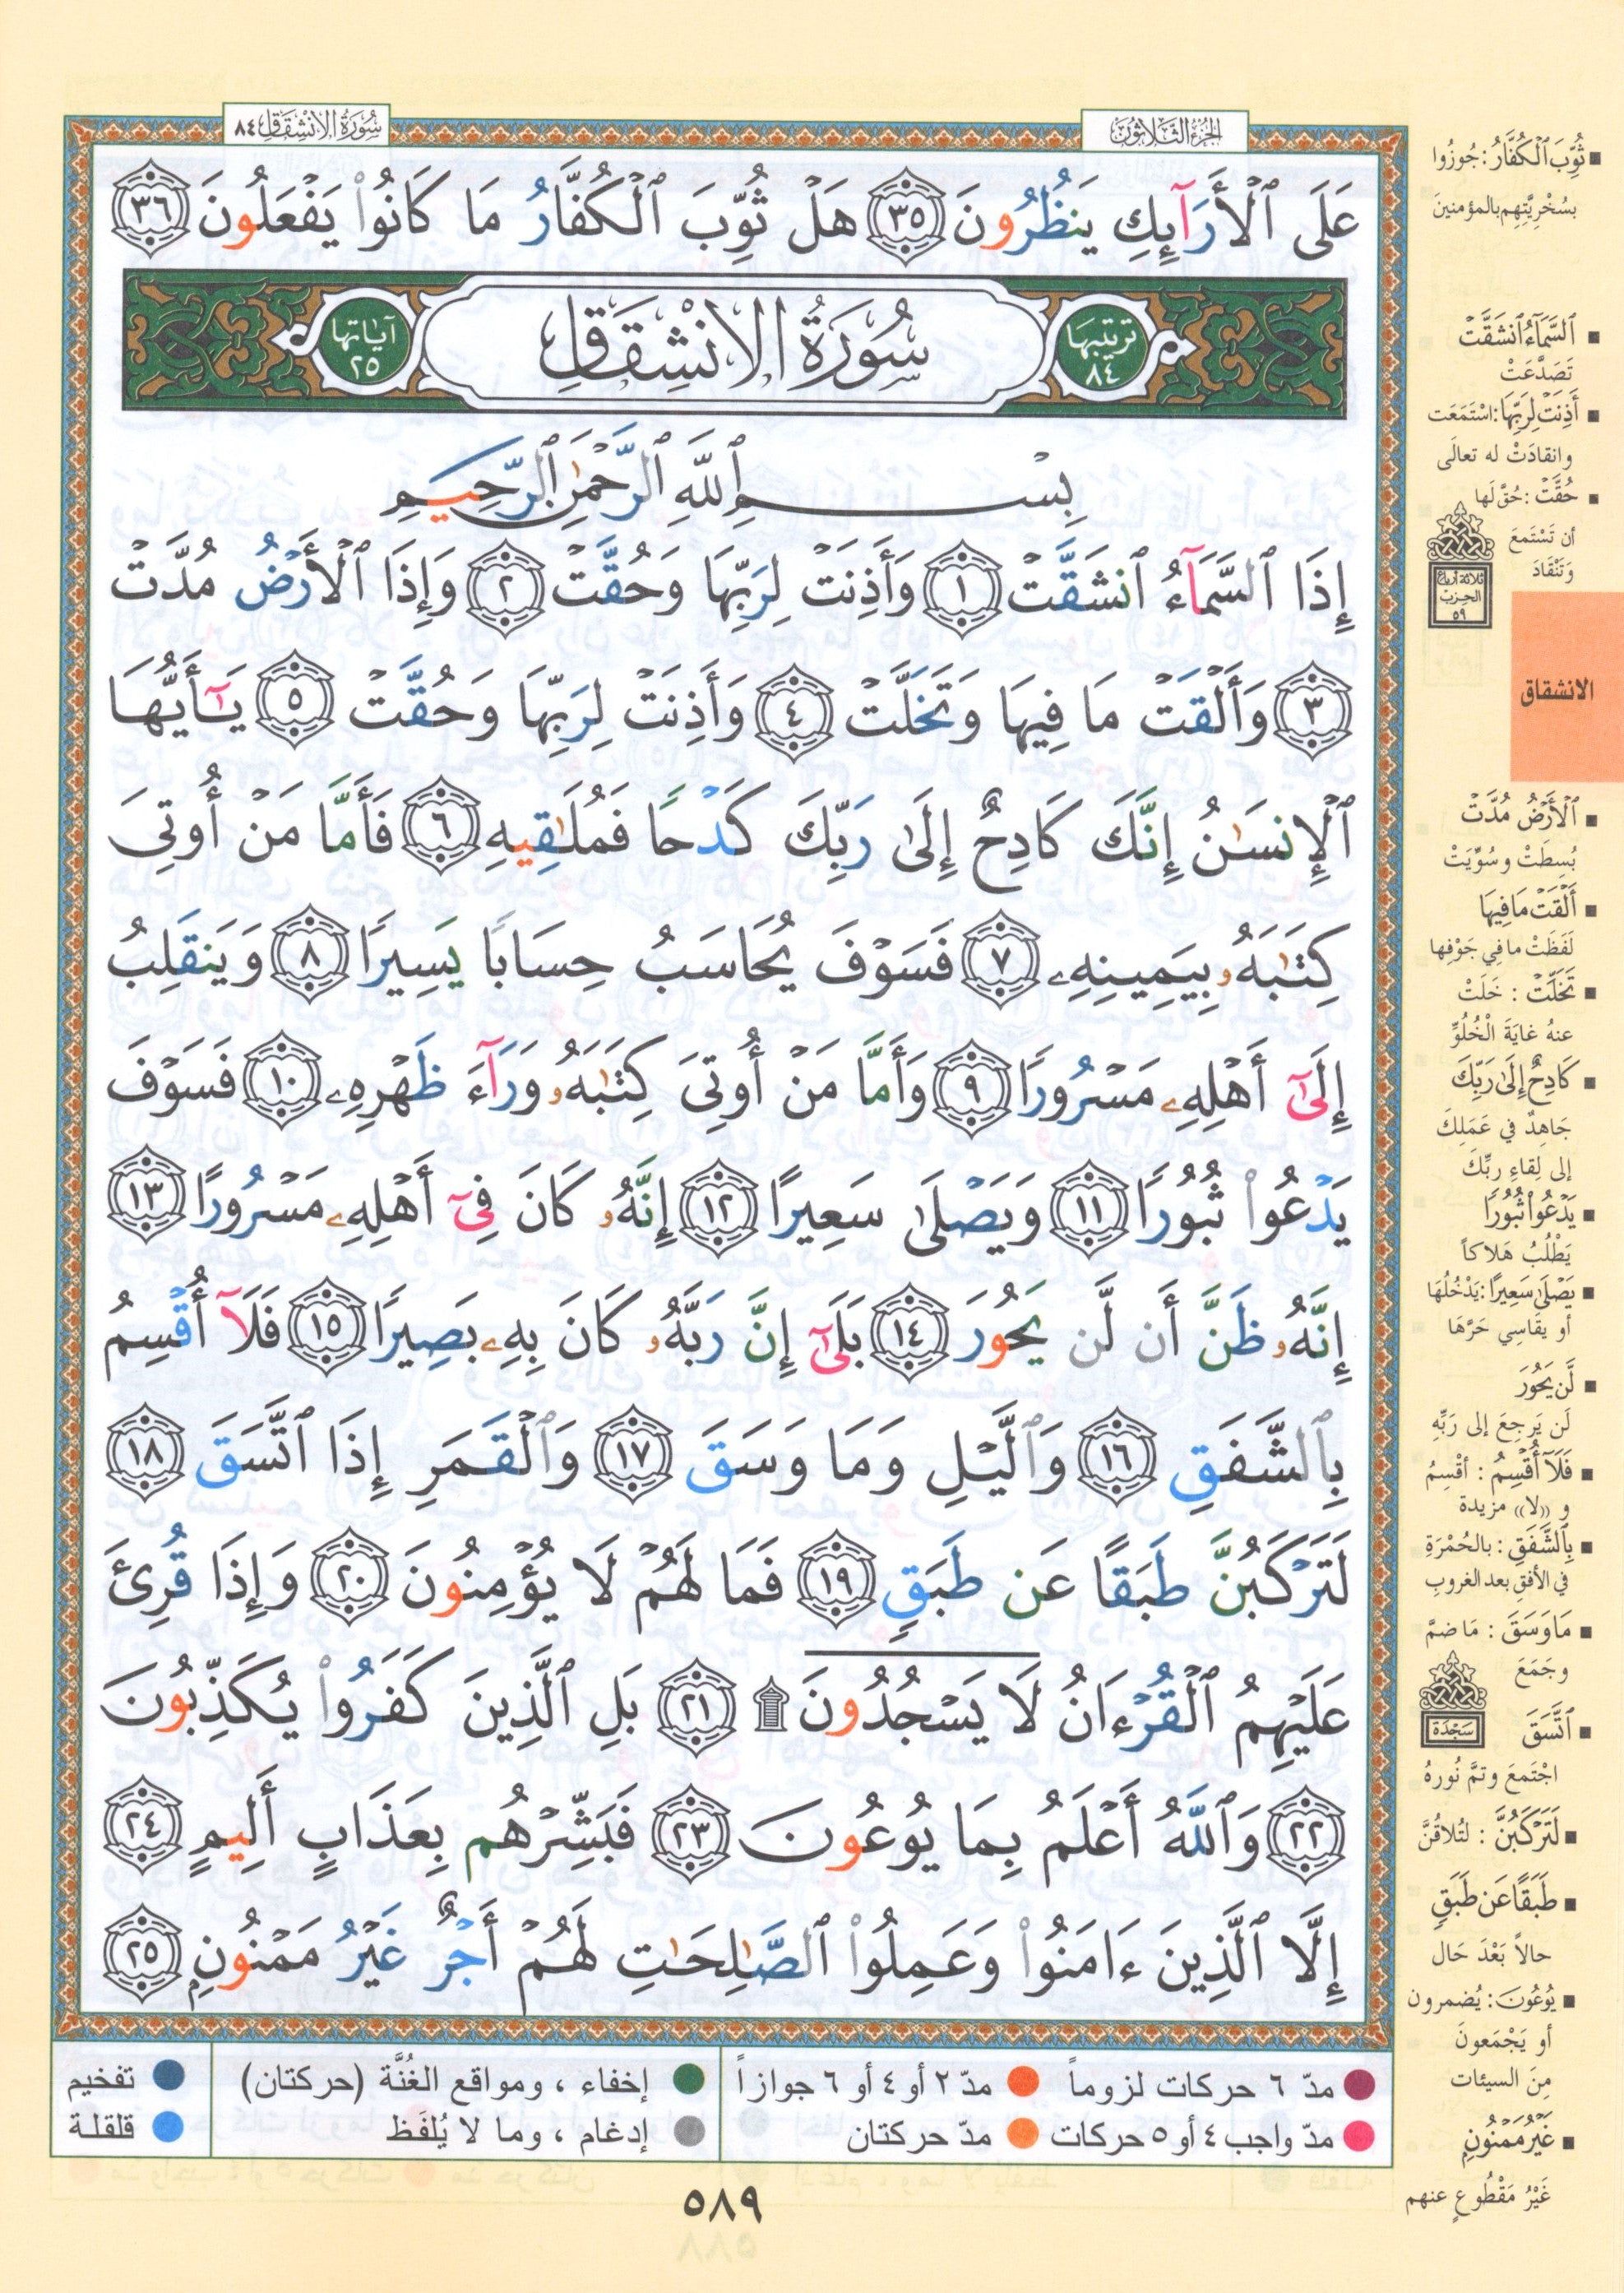 سُورَةُ الانْشِقَاقِ ٨٤
الجُزءُ الثَّلاثُونَ
عَلَى ٱلْأَرَآئِكِ يَنظُرُونَ ٣٥ هَلْ ثُوِّبَ ٱلْكُفَّارُ مَا كَانُوا۟ يَفْعَلُونَ ٣٦
ترتيبها ٨٤
سُورَةُ الانْشِقَاقِ
آياتها ٢٥
بِسْمِ ٱللَّهِ ٱلرَّحْمَٰنِ ٱلرَّحِيمِ
إِذَا ٱلسَّمَآءُ ٱنشَقَّتْ ١ وَأَذِنَتْ لِرَبِّهَا وَحُقَّتْ ٢ وَإِذَا ٱلْأَرْضُ مُدَّتْ
٣ وَأَلْقَتْ مَا فِيهَا وَتَخَلَّتْ ٤ وَأَذِنَتْ لِرَبِّهَا وَحُقَّتْ ٥ يَٰٓأَيُّهَا
ٱلْإِنسَٰنُ إِنَّكَ كَادِحٌ إِلَىٰ رَبِّكَ كَدْحًا فَمُلَٰقِيهِ ٦ فَأَمَّا مَنْ أُوتِىَ
كِتَٰبَهُۥ بِيَمِينِهِۦ ٧ فَسَوْفَ يُحَاسَبُ حِسَابًا يَسِيرًا ٨ وَيَنقَلِبُ
إِلَىٰٓ أَهْلِهِۦ مَسْرُورًا ٩ وَأَمَّا مَنْ أُوتِىَ كِتَٰبَهُۥ وَرَآءَ ظَهْرِهِۦ ١٠ فَسَوْفَ
يَدْعُوا۟ ثُبُورًا ١١ وَيَصْلَىٰ سَعِيرًا ١٢ إِنَّهُۥ كَانَ فِىٓ أَهْلِهِۦ مَسْرُورًا ١٣
إِنَّهُۥ ظَنَّ أَن لَّن يَحُورَ ١٤ بَلَىٰٓ إِنَّ رَبَّهُۥ كَانَ بِهِۦ بَصِيرًا ١٥ فَلَآ أُقْسِمُ
بِٱلشَّفَقِ ١٦ وَٱلَّيْلِ وَمَا وَسَقَ ١٧ وَٱلْقَمَرِ إِذَا ٱتَّسَقَ ١٨
لَتَرْكَبُنَّ طَبَقًا عَن طَبَقٍ ١٩ فَمَا لَهُمْ لَا يُؤْمِنُونَ ٢٠ وَإِذَا قُرِئَ
عَلَيْهِمُ ٱلْقُرْءَانُ لَا يَسْجُدُونَ ۩ ٢١ بَلِ ٱلَّذِينَ كَفَرُوا۟ يُكَذِّبُونَ
٢٢ وَٱللَّهُ أَعْلَمُ بِمَا يُوعُونَ ٢٣ فَبَشِّرْهُم بِعَذَابٍ أَلِيمٍ ٢٤
إِلَّا ٱلَّذِينَ ءَامَنُوا۟ وَعَمِلُوا۟ ٱلصَّٰلِحَٰتِ لَهُمْ أَجْرٌ غَيْرُ مَمْنُونٍ ٢٥
ثُوِّبَ ٱلْكُفَّارُ: جُوزُوا
بسُخْرِيَّتِهِم بالمؤمنينَ
ٱلسَّمَآءُ ٱنشَقَّتْ
تَصَدَّعَتْ
أَذِنَتْ لِرَبِّهَا: اسْتَمَعَت
وانقادَتْ له تعالَى
حُقَّتْ: حُقَّ لَها
أن تَسْتَمعَ
وَتَنْقَادَ
ثلاثة أرباع
الحزب
٥٩
الانشقاق
ٱلْأَرْضُ مُدَّتْ
بُسِطَتْ وسُوِّيَتْ
أَلْقَتْ مَا فِيهَا
لَفَظَتْ ما في جَوْفِها
تَخَلَّتْ: خَلَتْ
عنهُ غايَةَ الْخُلُوِّ
كَادِحٌ إِلَىٰ رَبِّكَ
جَاهِدٌ في عَمَلِكَ
إلى لِقاءِ ربِّكَ
يَدْعُوا۟ ثُبُورًا
يَطْلُبُ هَلاكاً
يَصْلَىٰ سَعِيرًا: يَدْخُلُهَا
أو يقَاسِي حَرَّهَا
لَّن يَحُورَ
لَن يَرجِعَ إلى رَبِّهِ
فَلَآ أُقْسِمُ: أقْسِمُ
و ((لا)) مزيدة
بِٱلشَّفَقِ: بالحُمْرَةِ
في الأفقِ بعد الغروبِ
مَا وَسَقَ: مَا ضمَّ
وجَمَعَ
سَجْدَة
ٱتَّسَقَ
اجْتَمعَ وتمَّ نُورهُ
لَتَرْكَبُنَّ: لتُلاقُنَّ
طَبَقًا عَن طَبَقٍ
حالاً بَعْدَ حَال
يُوعُونَ: يُضمرون
أو يَجْمَعونَ
مِنَ السيئات
غَيْرُ مَمْنُونٍ
غَيْرُ مَقْطُوعٍ عنهم
مدّ ٦ حركات لزوماً
مدّ ٢ أو ٤ أو ٦ جوازاً
إخفاء ، ومواقع الغُنَّة (حركتان)
تفخيم
مدّ واجب ٤ أو ٥ حركات
مدّ حركتان
إدغام ، وما لا يُلفَظ
قلقلة
٥٨٩